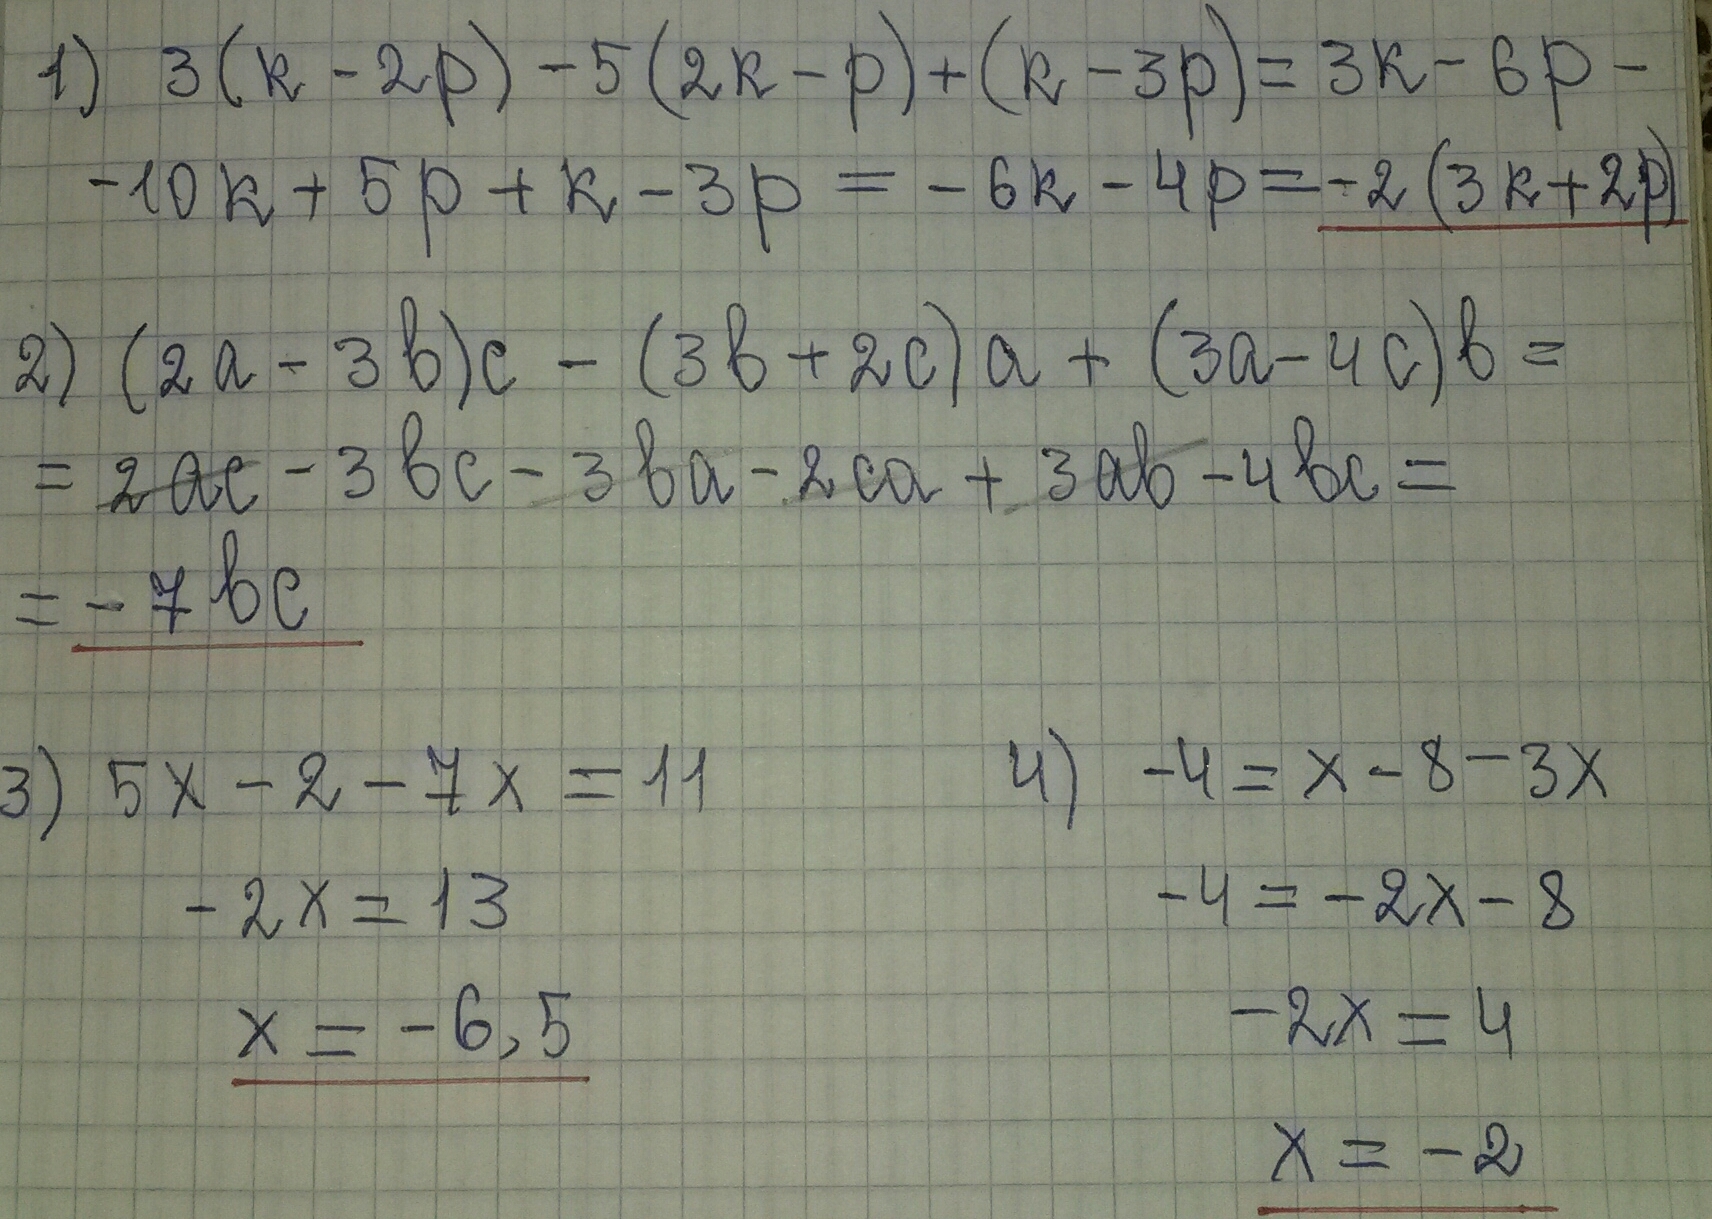 1) 3(k-2p)-5(2k-p)+(k-3p)=3k-6p-
-10k+5p+k-3p=-6k-4p=-2(3k+2p)
2) (2a-3b)c-(3b+2c)a+(3a-4c)b=
=2ac-3bc-3ba-2ca+3ab-4bc=
=-7bc
3) 5x-2-7x=11
-2x=13
x=-6,5
4) -4=x-8-3x
-4=-2x-8
-2x=4
x=-2